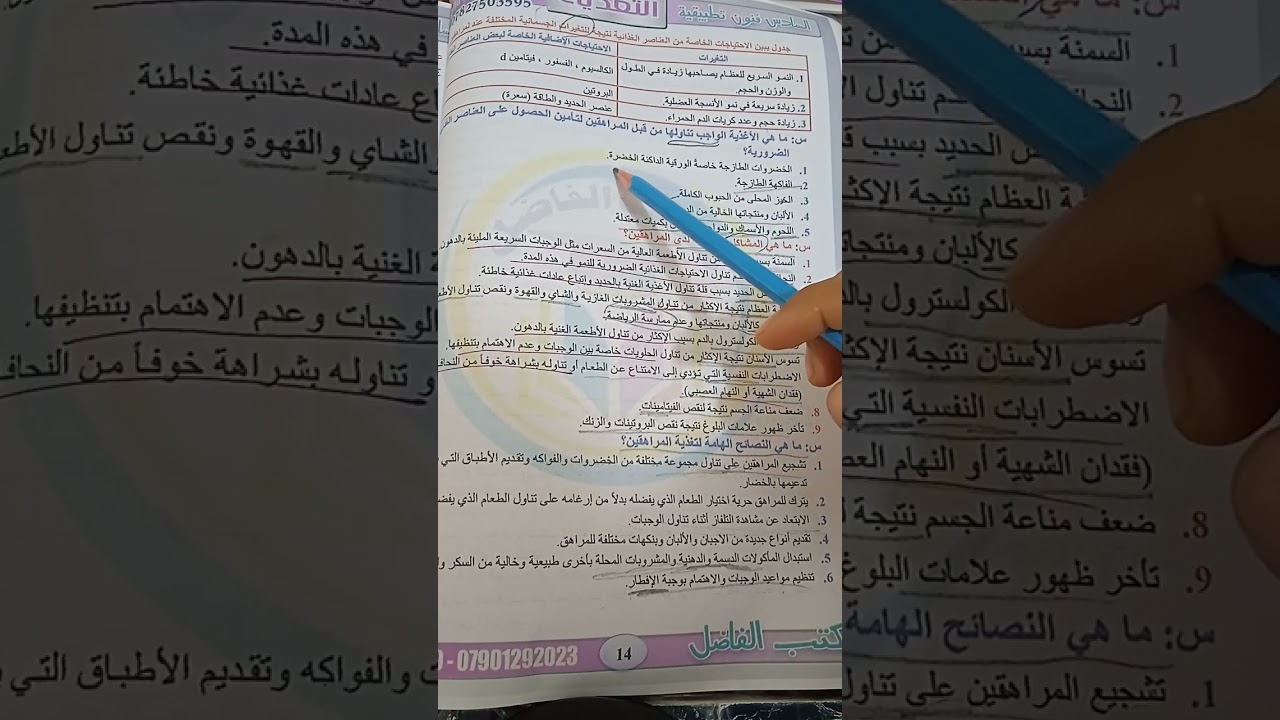 07827503595
التغذية
السادس فنون تطبيقية
جدول يبين الاحتياجات الخاصة من العناصر الغذائية نتيجة للتغيرات الجسمانية المختلفة عند
التغيرات
الاحتياجات الإضافية الخاصة لبعض العناصر
1. النمو السريع للعظام يصاحبها زيادة في الطول
والوزن والحجم.
الكالسيوم ، الفسفور ، فيتامين d
2. زيادة سريعة في نمو الأنسجة العضلية.
البروتين
3. زيادة حجم وعدد كريات الدم الحمراء.
عنصر الحديد والطاقة (سعرة)
س: ما هي الأغذية الواجب تناولها من قبل المراهقين لتأمين الحصول على العناصر
الضرورية؟
1. الخضروات الطازجة خاصة الورقية الداكنة الخضرة.
2. الفاكهة الطازجة.
3. الخبز المحلى من الحبوب الكاملة.
4. الألبان ومنتجاتها الخالية من
5. اللحوم والأسماك بكميات معتدلة.
س: ما هي لدى المراهقين؟
1. السمنة من تناول الأطعمة العالية من السعرات مثل الوجبات السريعة المليئة بالدهون.
2. تناول الاحتياجات الغذائية الضرورية للنمو في هذه المدة.
الحديد بسبب قلة تناول الأغذية الغنية بالحديد واتباع عادات غذائية خاطئة.
العظام نتيجة الإكثار من تناول المشروبات الغازية والشاي والقهوة ونقص تناول
كالألبان ومنتجاتها وعدم ممارسة الرياضة.
الكولسترول بالدم بسبب الإكثار من تناول الأطعمة الغنية بالدهون.
تسوس الأسنان نتيجة الإكثار من تناول الحلويات خاصة بين الوجبات وعدم الاهتمام بتنظيفها.
الاضطرابات النفسية التي تؤدي إلى الامتناع عن الطعام أو تناوله بشراهة خوفاً من
(فقدان الشهية أو النهام العصبي).
8. ضعف مناعة الجسم نتيجة لنقص الفيتامينات.
9. تأخر ظهور علامات البلوغ نتيجة نقص البروتينات والزنك.
س: ما هي النصائح الهامة لتغذية المراهقين؟
1. تشجيع المراهقين على تناول مجموعة مختلفة من الخضروات والفواكه وتقديم الأطباق التي
تدعيمها بالخضار.
2. يترك للمراهق حرية اختيار الطعام الذي يفضله بدلاً من إرغامه على تناول الطعام الذي
3. الابتعاد عن مشاهدة التلفاز أثناء تناول الوجبات.
4. تقديم أنواع جديدة من الاجبان والألبان وبنكهات مختلفة للمراهق.
5. استبدال المأكولات الدسمة والدهنية والمشروبات المحلة بأخرى طبيعية وخالية من السكر
6. تنظيم مواعيد الوجبات والاهتمام بوجبة الإفطار.
كتب الفاضل
14
07901292023